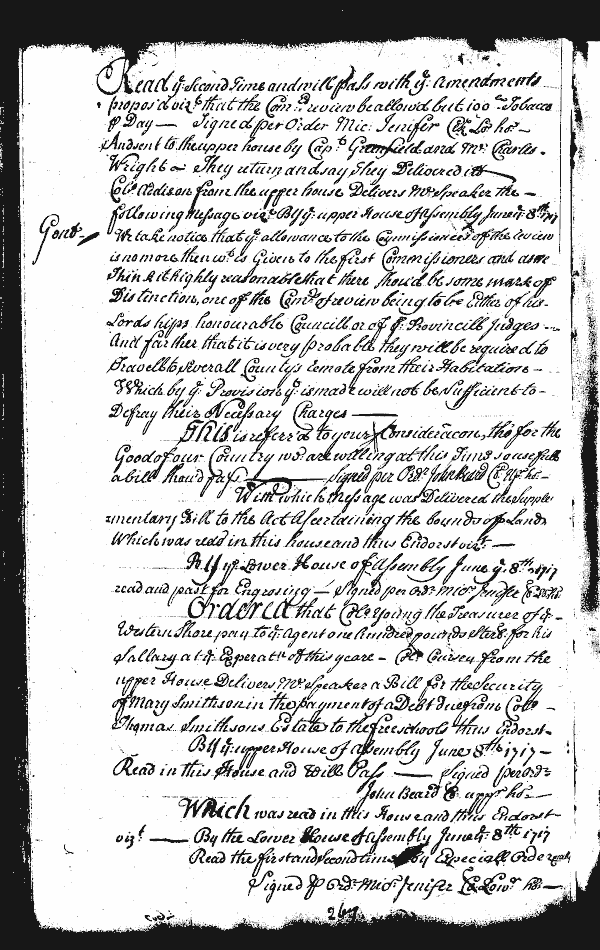 Read yͤ Second Time and will pass with yͤ amendments
propos'd vizᵗ that the Comʳˢ review be allowd but 100ˡᵇ Tobacco
℗ Day — Signed per Order Mic: Jenifer Clk Lo: hoˢ —
And sent to the upper house by Capᵗ Greenfield and Mʳ Charles
Wright — They return and say They Delivered it
Colᵒ Addison from the upper house Delivers Mʳ Speaker the
following message vizᵗ By yͤ upper House of Assembly June yͤ 8ᵗʰ 1717
Gentˢ
We take notice that yͤ allowance to the Commissioners of the review
is no more then wᵗ is Given to the first Commissioners and as we
Think it highly reasonable that there should be some mark of
Distinction, one of the Comʳˢ of review being to be Either of his
Lordships honourable Councill or of yͤ Provinciall Judges —
And farther that it is very probable they will be required to
Travell to severall Countys remote from their Habitations —
Which by yͤ Provision yͭ is made will not be Sufficient to
Defray their Necessary Charges —
This is referr'd to your Consideracon, tho for the
Good of our Country we are willing at this Time so usefull
a bill should pass — Signed per Ordʳ John Beard Cl upʳ hoˢ —
With which message was Delivered the Supple
mentary Bill to the Act Ascertaining the bounds of Lands
Which was read in this house and thus Endorst vizᵗ —
By yͤ Lower House of Assembly June yͤ 8ᵗʰ 1717
read and past for Engrossing — Signed per ordʳ Micˡ Jenifer
Ordered that Colᵒ Young the Treasurer of yͤ
Western Shore pay to yͤ Agent one hundred pounds Sterˡ for his
Sallary at yͤ Experatⁿ of this yeare — Colᵒ Coursey from the
upper House Delivers Mʳ Speaker a Bill for the Security
of Mary Smithson in the payment of a Debt due from Colᵒ
Thomas Smithsons Estate to the free schools thus Endorst
By yͤ upper House of assembly June 8ᵗʰ 1717 —
Read in this House and Will Pass — Signed per ordʳ
John Beard Cl uppʳ hoˢ —
Which was read in this House and thus Endorst
vizᵗ — By the Lower House of Assembly June yͤ 8ᵗʰ 1717
Read the first and Second time by Especiall Order
Signed ℗ Ordʳ Micˡ Jenifer Clk Lowʳ hoˢ —